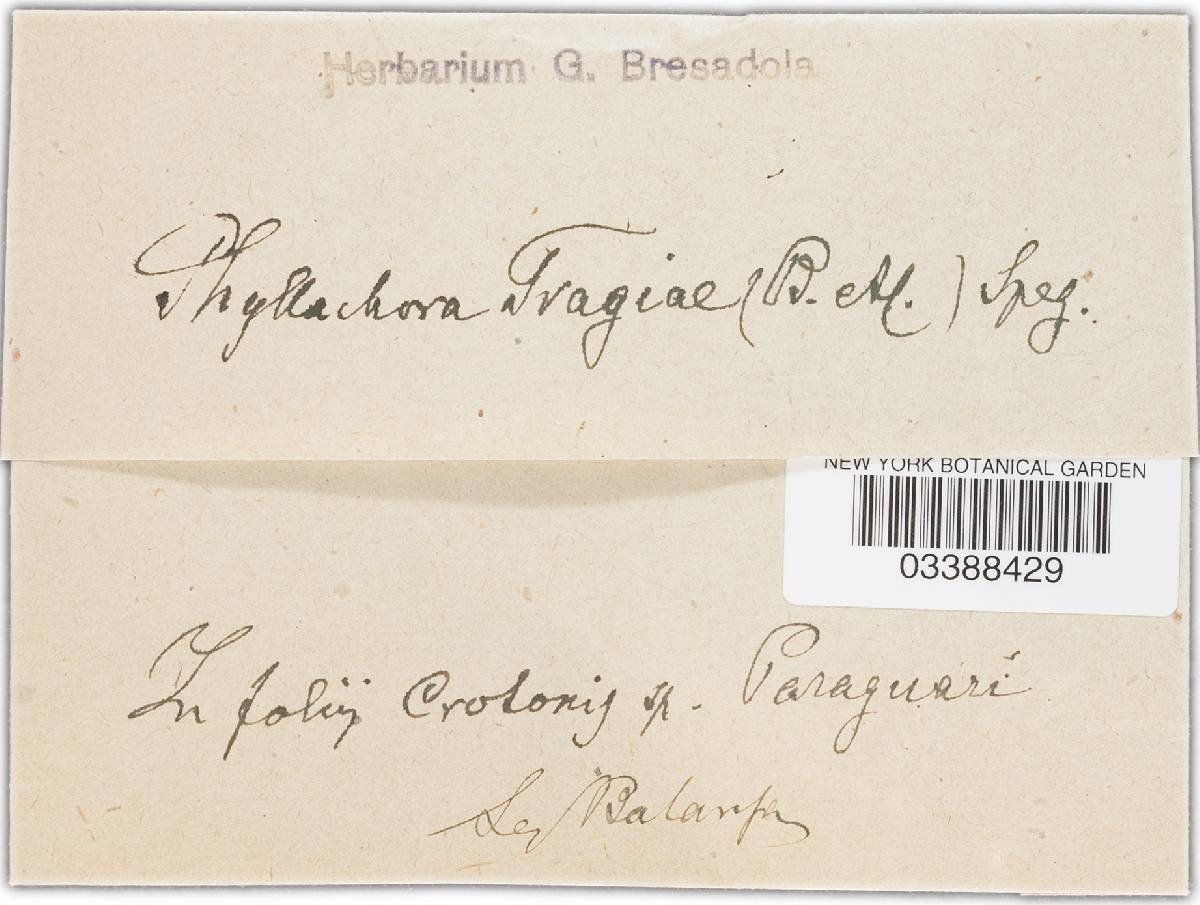 Herbarium G. Bresadola
Phyllachora Tragiae (B. et M.) Speg.
NEW YORK BOTANICAL GARDEN
03388429
In foliis Crotonis sp. Paraguari
Leg Balansa